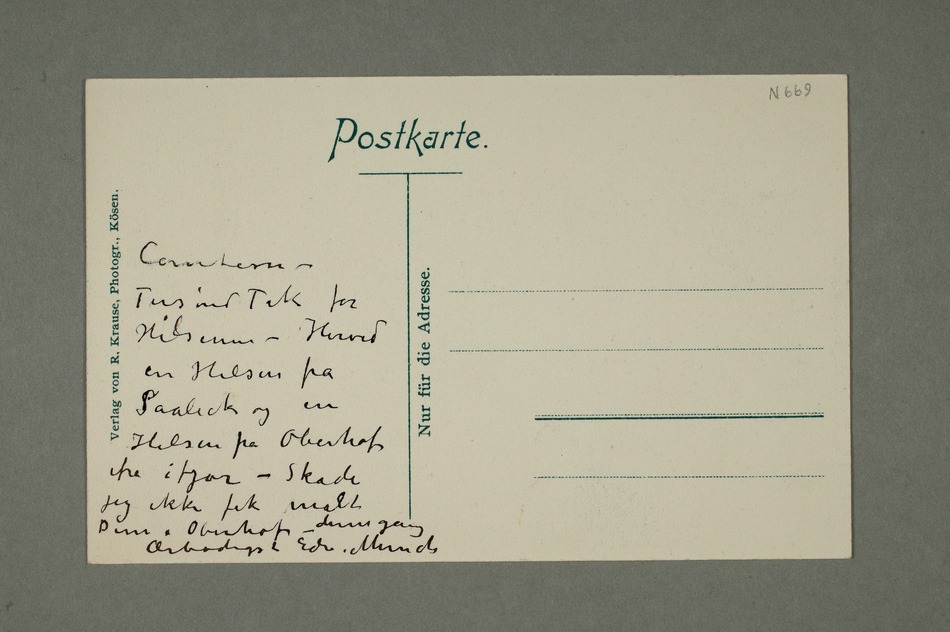 N 669
Postkarte.
Verlag von R. Krause, Photogr., Kösen.
Nur für die Adresse.
Tusind Tak for
Hilsenen – Herved
en Hilsen fra
og en
Hilsen fra Oberhof
fra ifjor – Skade
jeg ikke fik malt
Dem i Oberhof – denne gang
Ærbødigst Edv. Munch